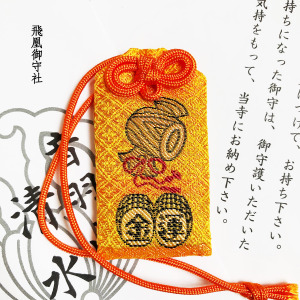 持ちになった御守は、御守護いただいた
気持をもって、当寺にお納め下さい。
お持ち下さい。
飛凰御守社
清
水
金運